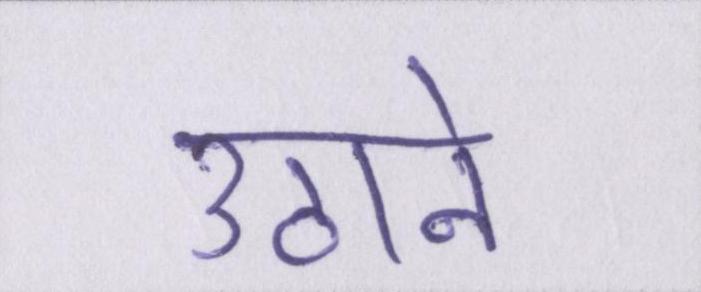 उठाने